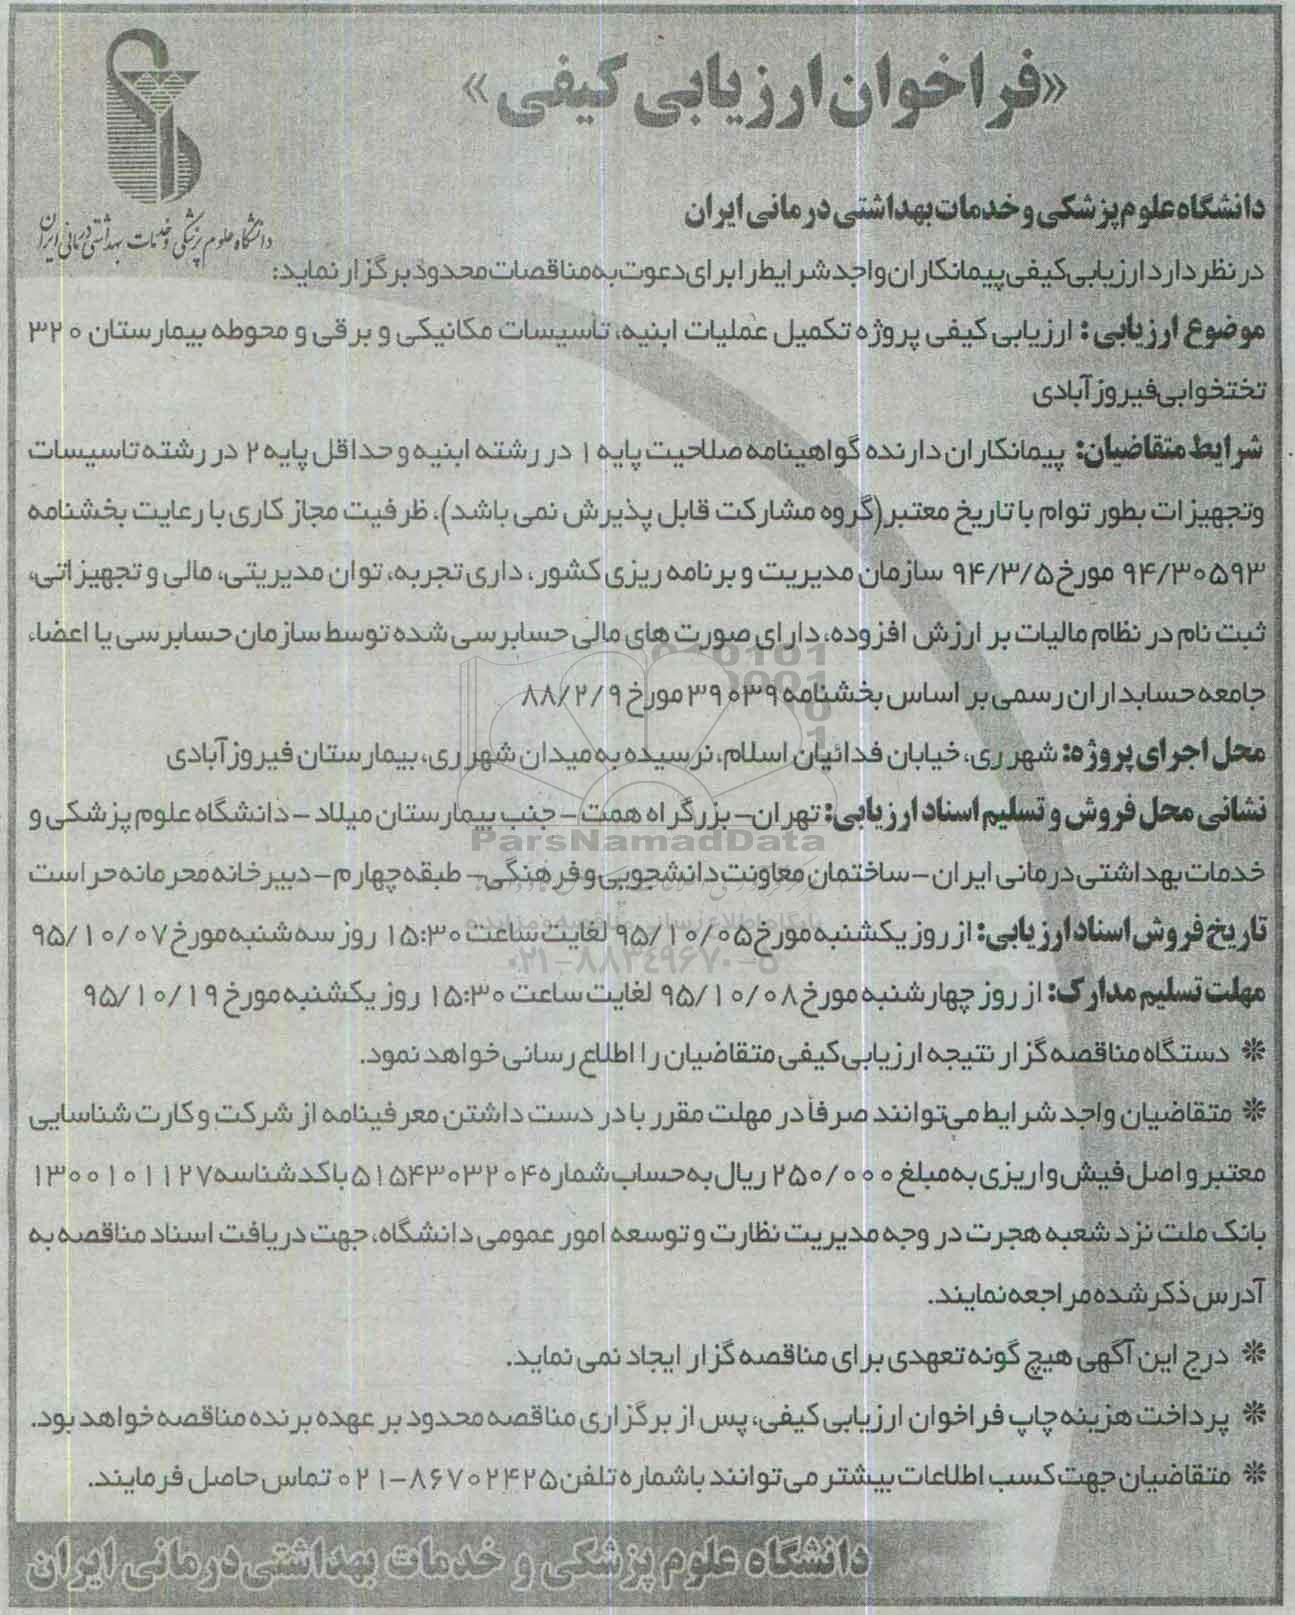 «فراخوان ارزیابی کیفی»
دانشگاه علوم پزشکی و خدمات بهداشتی درمانی ایران
دانشگاه علوم پزشکی و خدمات بهداشتی درمانی ایران
در نظر دارد ارزیابی کیفی پیمانکاران واجد شرایط را برای دعوت به مناقصات محدود برگزار نماید:
موضوع ارزیابی: ارزیابی کیفی پروژه تکمیل عملیات ابنیه، تأسیسات مکانیکی و برقی و محوطه بیمارستان ۳۲۰
تختخوابی فیروزآبادی
شرایط متقاضیان: پیمانکاران دارنده گواهینامه صلاحیت پایه ۱ در رشته ابنیه و حداقل پایه ۲ در رشته تاسیسات
وتجهیزات بطور توام با تاریخ معتبر(گروه مشارکت قابل پذیرش نمی باشد)، ظرفیت مجاز کاری با رعایت بخشنامه
۹۴/۳۰۵۹۳ مورخ ۹۴/۳/۵ سازمان مدیریت و برنامه ریزی کشور، داری تجربه، توان مدیریتی، مالی و تجهیزاتی،
ثبت نام در نظام مالیات بر ارزش افزوده، دارای صورت های مالی حسابرسی شده توسط سازمان حسابرسی یا اعضاء
جامعه حسابداران رسمی بر اساس بخشنامه ۳۹۰۳۹ مورخ ۸۸/۲/۹
محل اجرای پروژه: شهر ری، خیابان فدائیان اسلام، نرسیده به میدان شهر ری، بیمارستان فیروزآبادی
نشانی محل فروش و تسلیم اسناد ارزیابی: تهران- بزرگراه همت- جنب بیمارستان میلاد - دانشگاه علوم پزشکی و
ParsNamadData
خدمات بهداشتی درمانی ایران -ساختمان معاونت دانشجویی و فرهنگی- طبقه چهارم- دبیرخانه محرمانه حراست
پایگاه اطلاع رسانی مناقصه و مزایده
تاریخ فروش اسناد ارزیابی: از روز یکشنبه مورخ ۹۵/۱۰/۰۵ لغایت ساعت ۱۵:۳۰ روز سه شنبه مورخ ۹۵/۱۰/۰۷
۰۲۱-۸۸۳۴۹۶۷۰-۵
مهلت تسلیم مدارک: از روز چهارشنبه مورخ ۹۵/۱۰/۰۸ لغایت ساعت ۱۵:۳۰ روز یکشنبه مورخ ۹۵/۱۰/۱۹
❊ دستگاه مناقصه گزار نتیجه ارزیابی کیفی متقاضیان را اطلاع رسانی خواهد نمود.
❊ متقاضیان واجد شرایط می‌توانند صرفاً در مهلت مقرر با در دست داشتن معرفینامه از شرکت و کارت شناسایی
معتبر و اصل فیش واریزی به مبلغ ۲۵۰/۰۰۰ ریال به حساب شماره ۵۱۵۴۳۰۳۲۰۴ با کد شناسه ۱۳۰۰۱۰۱۱۲۷
بانک ملت نزد شعبه هجرت در وجه مدیریت نظارت و توسعه امور عمومی دانشگاه، جهت دریافت اسناد مناقصه به
آدرس ذکر شده مراجعه نمایند.
❊ درج این آگهی هیچ گونه تعهدی برای مناقصه گزار ایجاد نمی نماید.
❊ پرداخت هزینه چاپ فراخوان ارزیابی کیفی، پس از برگزاری مناقصه محدود بر عهده برنده مناقصه خواهد بود.
❊ متقاضیان جهت کسب اطلاعات بیشتر می توانند با شماره تلفن ۸۶۷۰۲۴۲۵-۰۲۱ تماس حاصل فرمایند.
دانشگاه علوم پزشکی و خدمات بهداشتی درمانی ایران